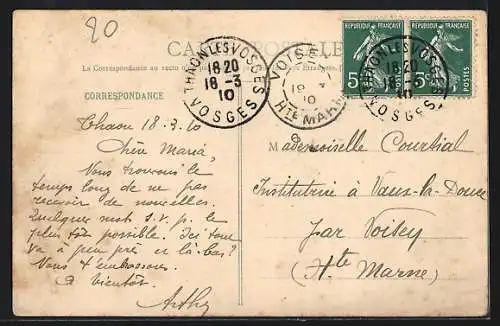 20
CARTE POSTALE
La Correspondance au recto
CORRESPONDANCE
THAON LES VOSGES
18 20
18 - 3
10
VOSGES
VOISEY
18
10
HTE MARNE
RÉPUBLIQUE FRANÇAISE
5c
POSTES
RÉPUBLIQUE FRANÇAISE
5c
POSTES
THAON LES VOSGES
18 20
18 - 3
10
VOSGES
Thaon 18-3.10
Chère Maria,
Nous trouvons le
temps long de ne pas
recevoir de nouvelles.
Quelques mots s.v.p. le
plus tôt possible. Ici tout
va à peu près et là-bas?
Nous t'embrassons.
A bientôt.
Mademoiselle Courtial
Institutrice à Vaux-la-Douce
par Voisey
(Hte Marne)